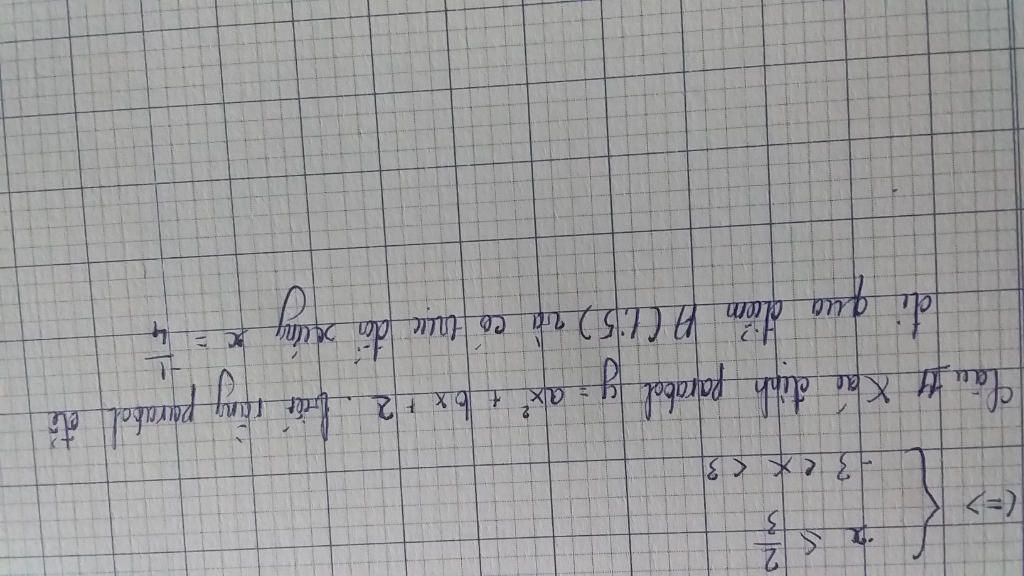 x ≤ 2/3
<=> {
-3 < x < 3
Câu 11 Xác định parabol y = ax² + bx + 2. biết rằng parabol đi
đi qua điểm A(1;5) và có trục đối xứng x = -1/4